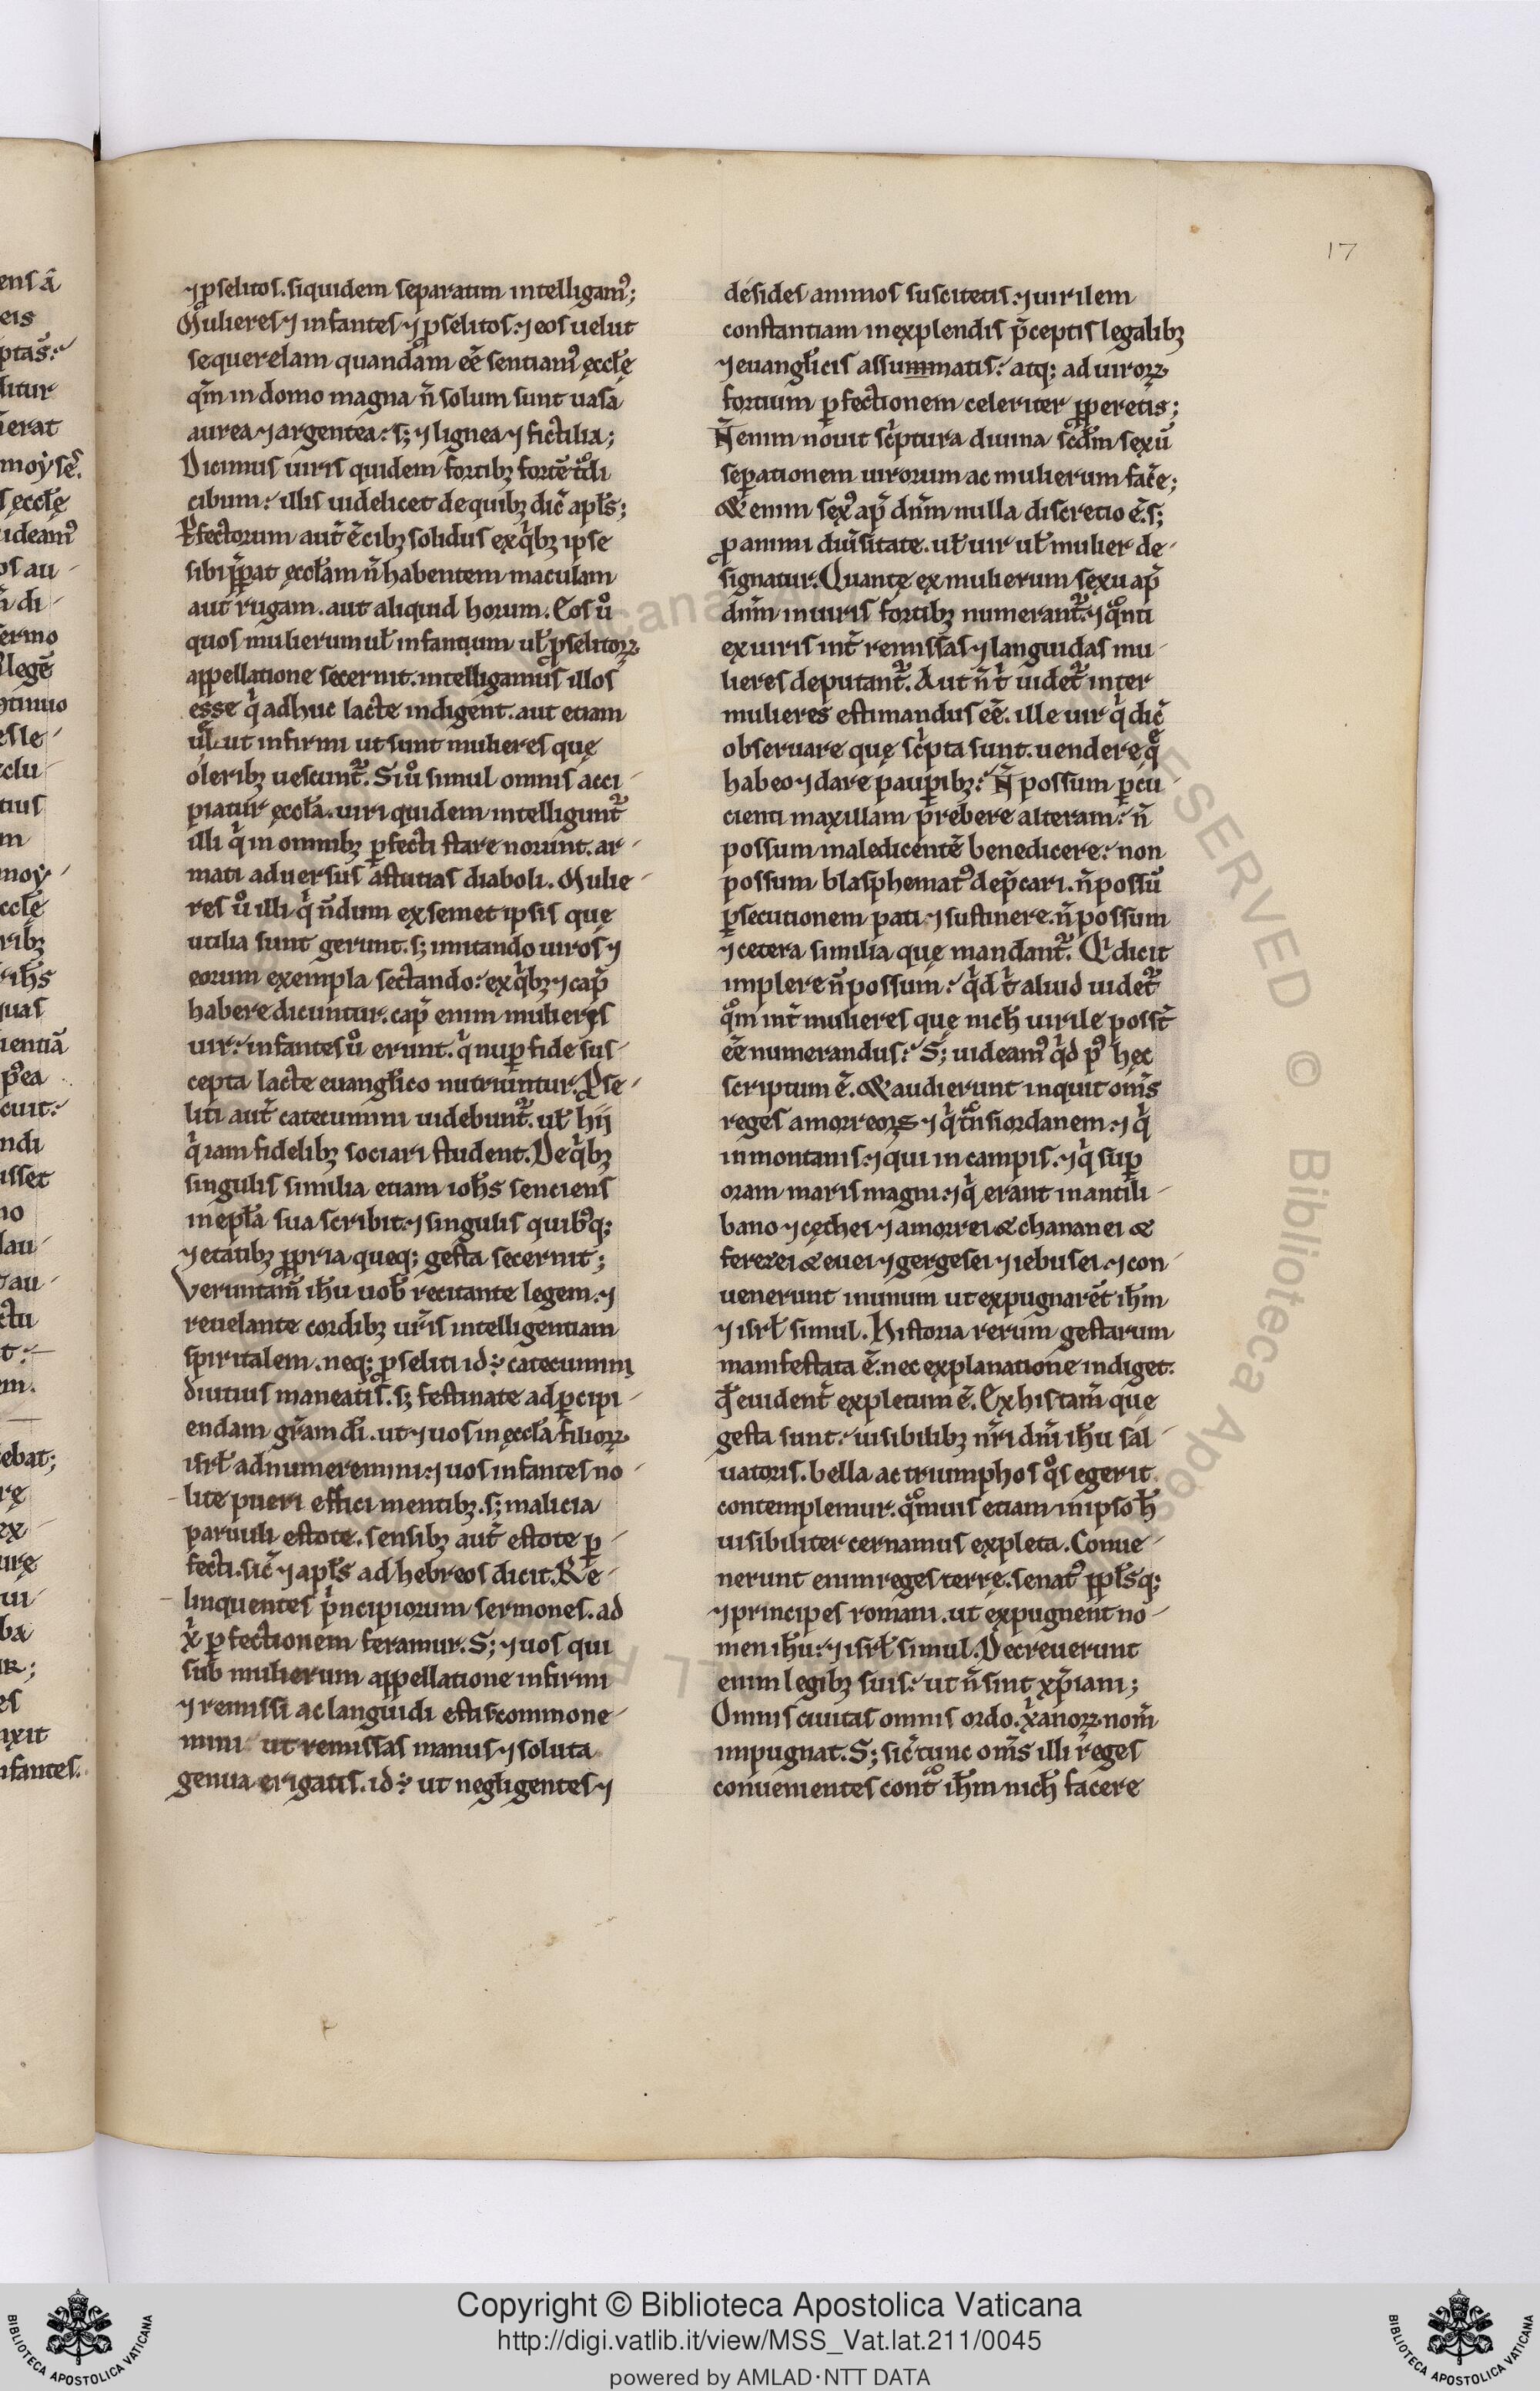 17
⁊ p̱selitos. siquidem separatim intelligamꝰ;
Mulieres ⁊ infantes ⁊ p̱selitos: ⁊ eos uelut
sequerelam quandam eē sentiamꝰ ęccłę
qm̄ in domo magna ñ solum sunt uasa
aurea ⁊ argentea: sꝫ ⁊ lignea ⁊ fictilia;
Dicimus uiris quidem fortibꝫ fortē t̊di
cibum: illis uidelicet de quibꝫ dic̄ apłs;
P̱fectorum aut̄ ē cibꝫ solidus ex qͥbꝫ ipse
sibi p̄parat ęccłam ñ habentem maculam
aut rugam. aut aliquid horum. Eos ů
quos mulierum uł infantium uł p̱selitoꝝ
appellatione secernit. intelligamus illos
esse qͥ adhuc lacte indigent. aut etiam
ut infirmi ut sunt mulieres quę
oleribꝫ uescunt᷑. Si ů simul omnis acci-
piatur ęccła. uiri quidem intelligunt᷑
illi qͥ in omnibꝫ ꝑfecti stare nouint. ar-
mati aduersus astutias diaboli. Mulie-
res ů illi qͥ ñdum ex semet ipsis quę
utilia sunt gerunt. sꝫ imitando uiros ⁊
eorum exempla sectando: ex qͥbꝫ ⁊ cap̄
habere dicuntur. cap̄ enim mulieris
uir: infantes ů erunt. qͥ nuꝑ fide sus-
cepta lacte euangłico nutriuntur. P̱se-
liti aut̄ catecumini uidebunt᷑. uł hij
qͥ iam fidelibꝫ sociari student. De qͥbꝫ
singulis similia etiam ioħs senciens
in epłа sua scribit: ⁊ singulis quibꝰqꝫ
⁊ etatibꝫ ꝓpria queqꝫ gesta secernit;
Veruntam̄ iħu uob̄ recitante legem. ⁊
reuelante cordibꝫ ur̄is intelligentiam
spiritalem. neqꝫ p̱seliti id ÷ catecumini
diutius maneatis. sꝫ festinate ad ꝑcipi-
endam gr̄am dī. ut ⁊ uos in ęccła filioꝝ
isrł adnumeremini: ⁊ uos infantes no-
lite pueri effici mentibꝫ. sꝫ malicia
paruuli estote. sensibꝫ aut̄ estote ꝑ-
fecti. sic̄ ⁊ apłs ad hebreos dicit. Re-
linquentes pͥncipiorum sermones. ad
xͥ ꝑfectionem feramur. Sꝫ ⁊ uos qui
sub mulierum appellatione infirmi
⁊ remissi ac languidi estis commone-
mini ut remissas manus ⁊ soluta
genua erigatis. id ÷ ut negligentes ⁊
desides animos suscitetis: ⁊ uirilem
constantiam in explendis p̄ceptis legalibꝫ
⁊ euangłicis assummatis: atqꝫ ad uiroꝝ
fortium ꝑfectionem celeriter ꝓperetis;
Ñ enim nouit scͥptura diuina scd̄m sexū
seꝑationem uirorum ac mulierum facē;
& enim sexꝰ ap̄ dn̄m nulla discretio ē. sꝫ
p̱ animi diu̇sitate. uł uir uł mulier de-
signatur. Quantę ex mulierum sexu ap̄
dn̄m in uiris fortibꝫ numerant᷑: ⁊ qͦnti
ex uiris int̄ remissas ⁊ languidas mu-
lieres deputant᷑. Aut ñ tͥ uidet᷑ inter
mulieres estimandus eē. ille uir qͥ dic̄
obseruare quę scͥpta sunt. uendere qͤ
habeo ⁊ dare pauꝑibꝫ: Ñ possum ꝑcu
cienti maxillam prebere alteram: ñ
possum maledicentē benedicere: non
possum blasphematꝰ dep̄cari. ñ possū
ꝑsecutionem pati ⁊ sustinere. ñ possum
⁊ cetera similia quę mandant᷑. Qͥ dicit
implere ñ possum: qͥd tͥ aliud uidet᷑
qͦm int̄ mulieres quę nich̄ uirile posst̄
eē numerandus: Sꝫ uideamꝰ qͥd pꝰ hęc
scriptum ē. & audierunt inquit om̄s
reges amorreoꝝ ⁊ qͥ tͣnsiordanem: ⁊ qͥ
in montanis: ⁊ qui in campis: ⁊ qͥ suꝑ
oram maris magni: ⁊ qͥ erant in antili-
bano ⁊ cęthei ⁊ amorrei & chananei &
ferezei & euei ⁊ gergesei ⁊ iebusei. ⁊ con-
uenerunt in unum ut expugnarēt iħm
⁊ isrł simul. Historia rerum gestarum
manifestata ē. nec explanatione indiget.
qd̄ euident̄ expletum ē. Ex his tam̄ quę
gesta sunt: uisibilibꝫ nr̄i dn̄i iħu sal-
uatoris. bella ac triumphos qͦs egerit
contemplemur. qͦmuis etiam in ipso h̄
uisibiliter cernamus expleta. Conue-
nerunt enim reges terrę. senatꝰ ppłsqꝫ
⁊ principes romani. ut expugnent no-
men iħu: ⁊ isrł simul. Decreuerunt
enim legibꝫ suis: ut ñ sint xp̄iani;
Omnis ciuitas omnis ordo. xͥanoꝝ nom̄
impugnat. Sꝫ sic̄ tunc om̄s illi reges
conuenientes cont̊ iħm nich̄ facere
Copyright © Biblioteca Apostolica Vaticana
http://digi.vatlib.it/view/MSS_Vat.lat.211/0045
powered by AMLAD·NTT DATA
BIBLIOTECA APOSTOLICA VATICANA
BIBLIOTECA APOSTOLICA VATICANA